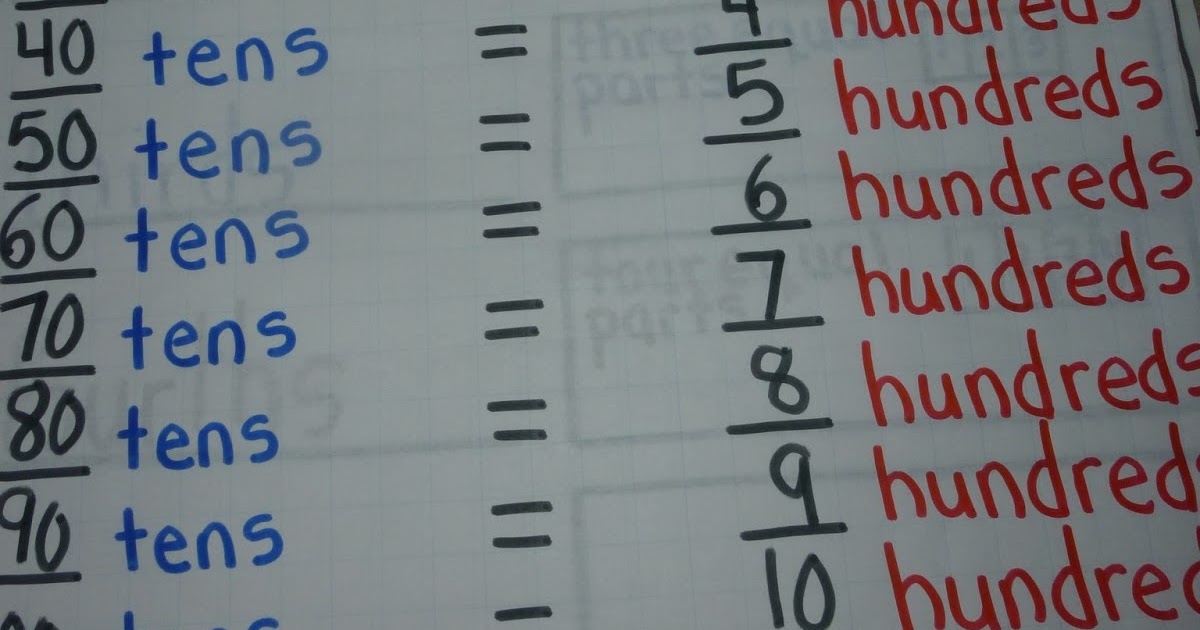 40 tens = 4 hundreds
50 tens = 5 hundreds
60 tens = 6 hundreds
70 tens = 7 hundreds
80 tens = 8 hundreds
90 tens = 9 hundred
tens = 10 hundred